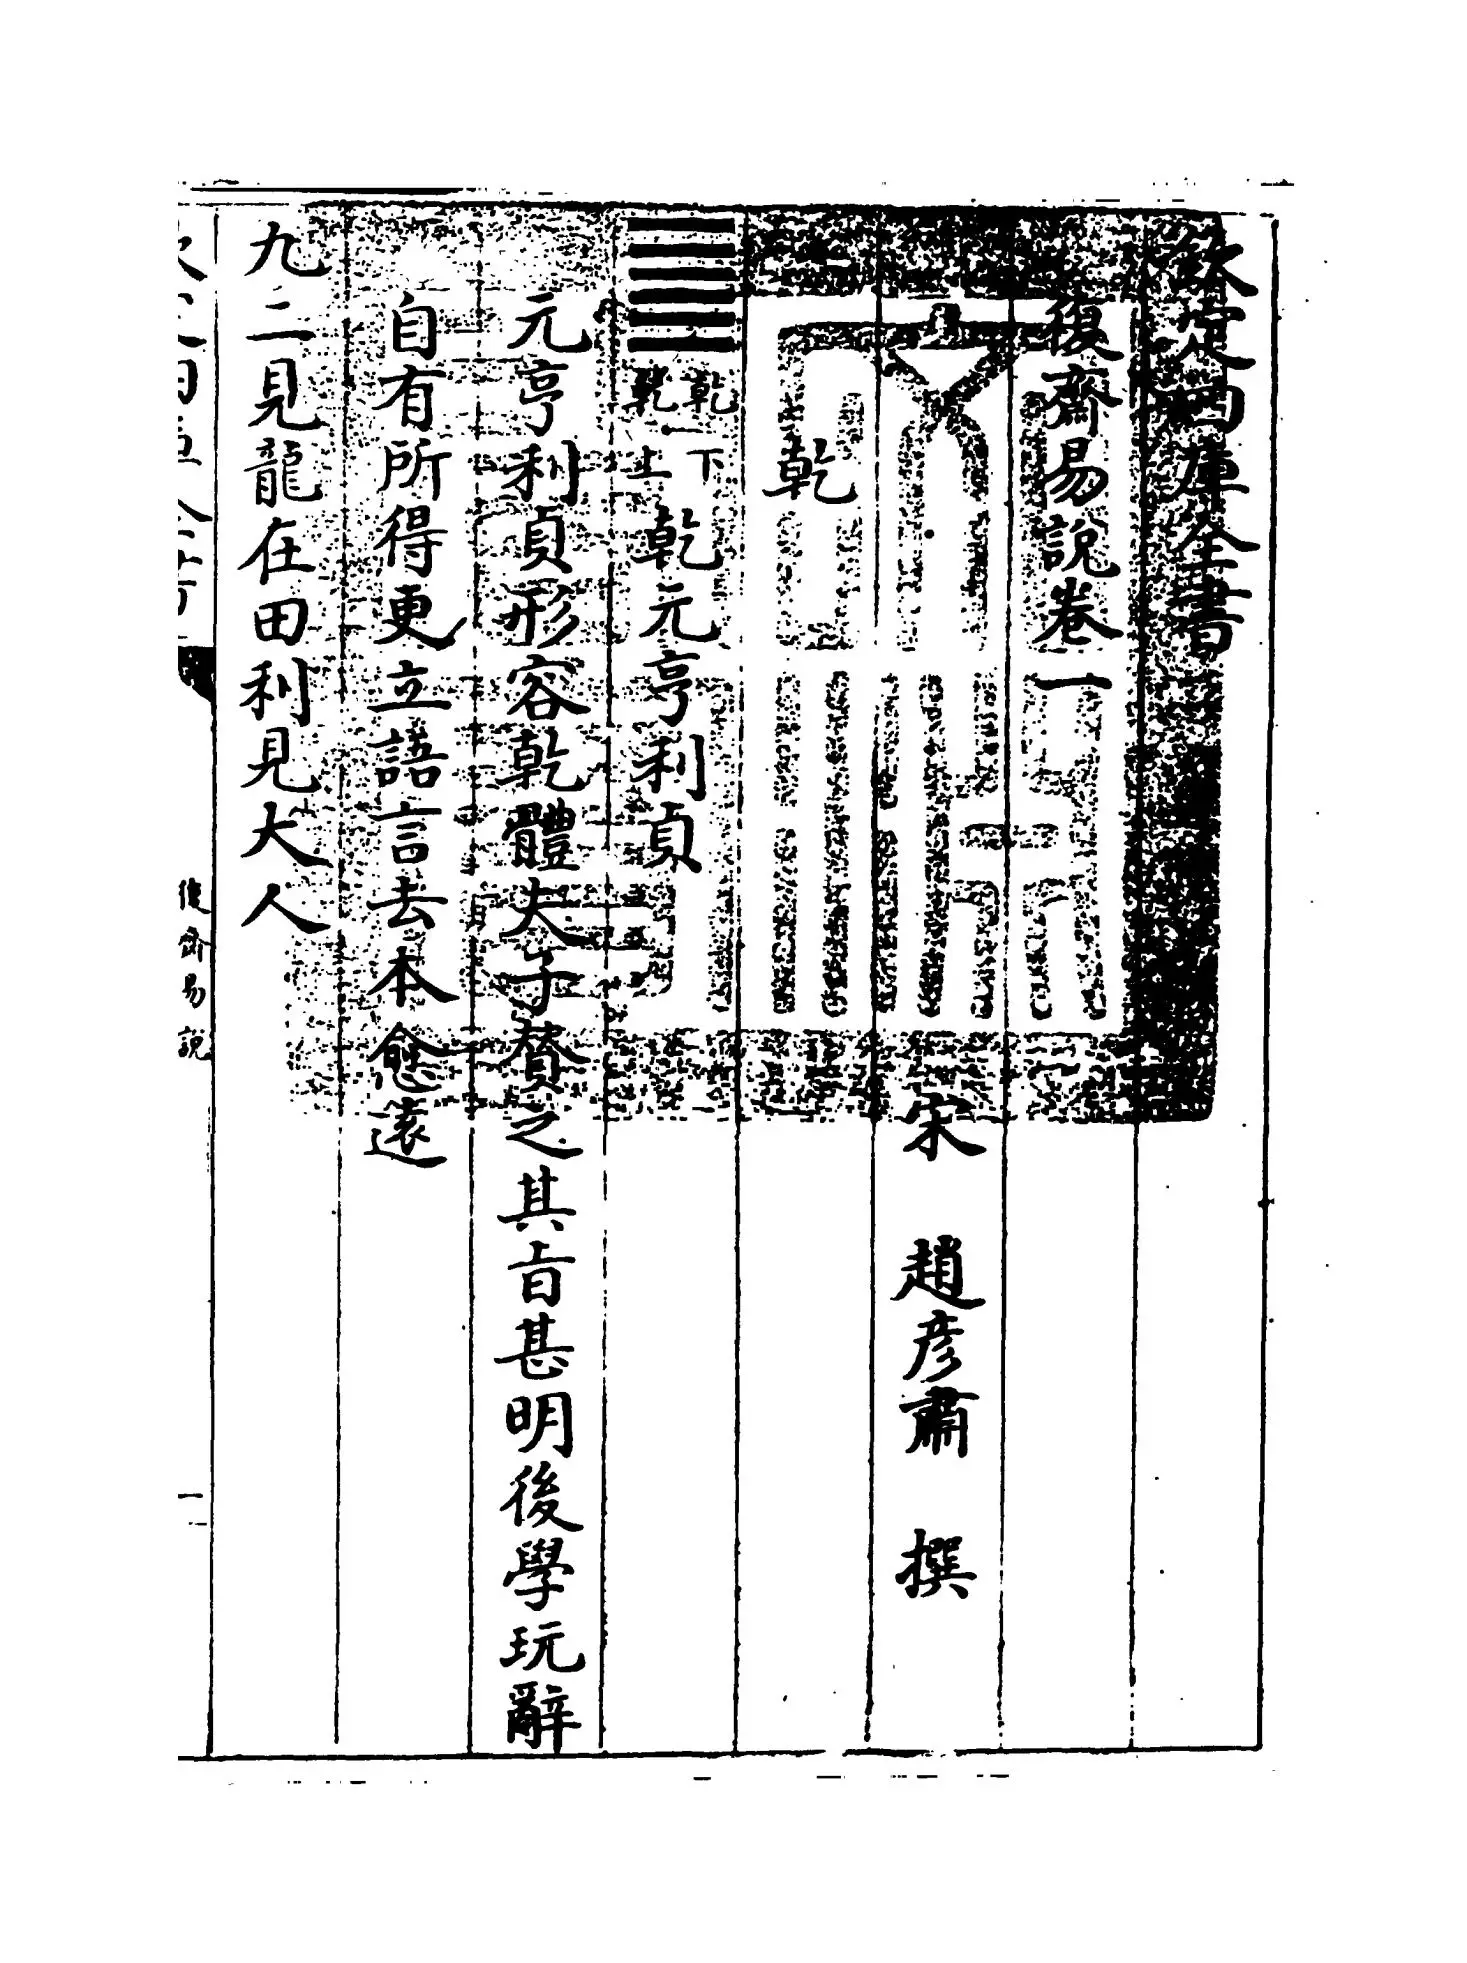 欽定四庫全書
復齋易說卷一
宋 趙彥肅 撰
乾
䷀乾下乾上 乾元亨利貞
元亨利貞形容乾體夫子賛之其㫖甚明後學玩辭
自有所得更立語言去本愈遠
九二見龍在田利見大人
復齋易說
一